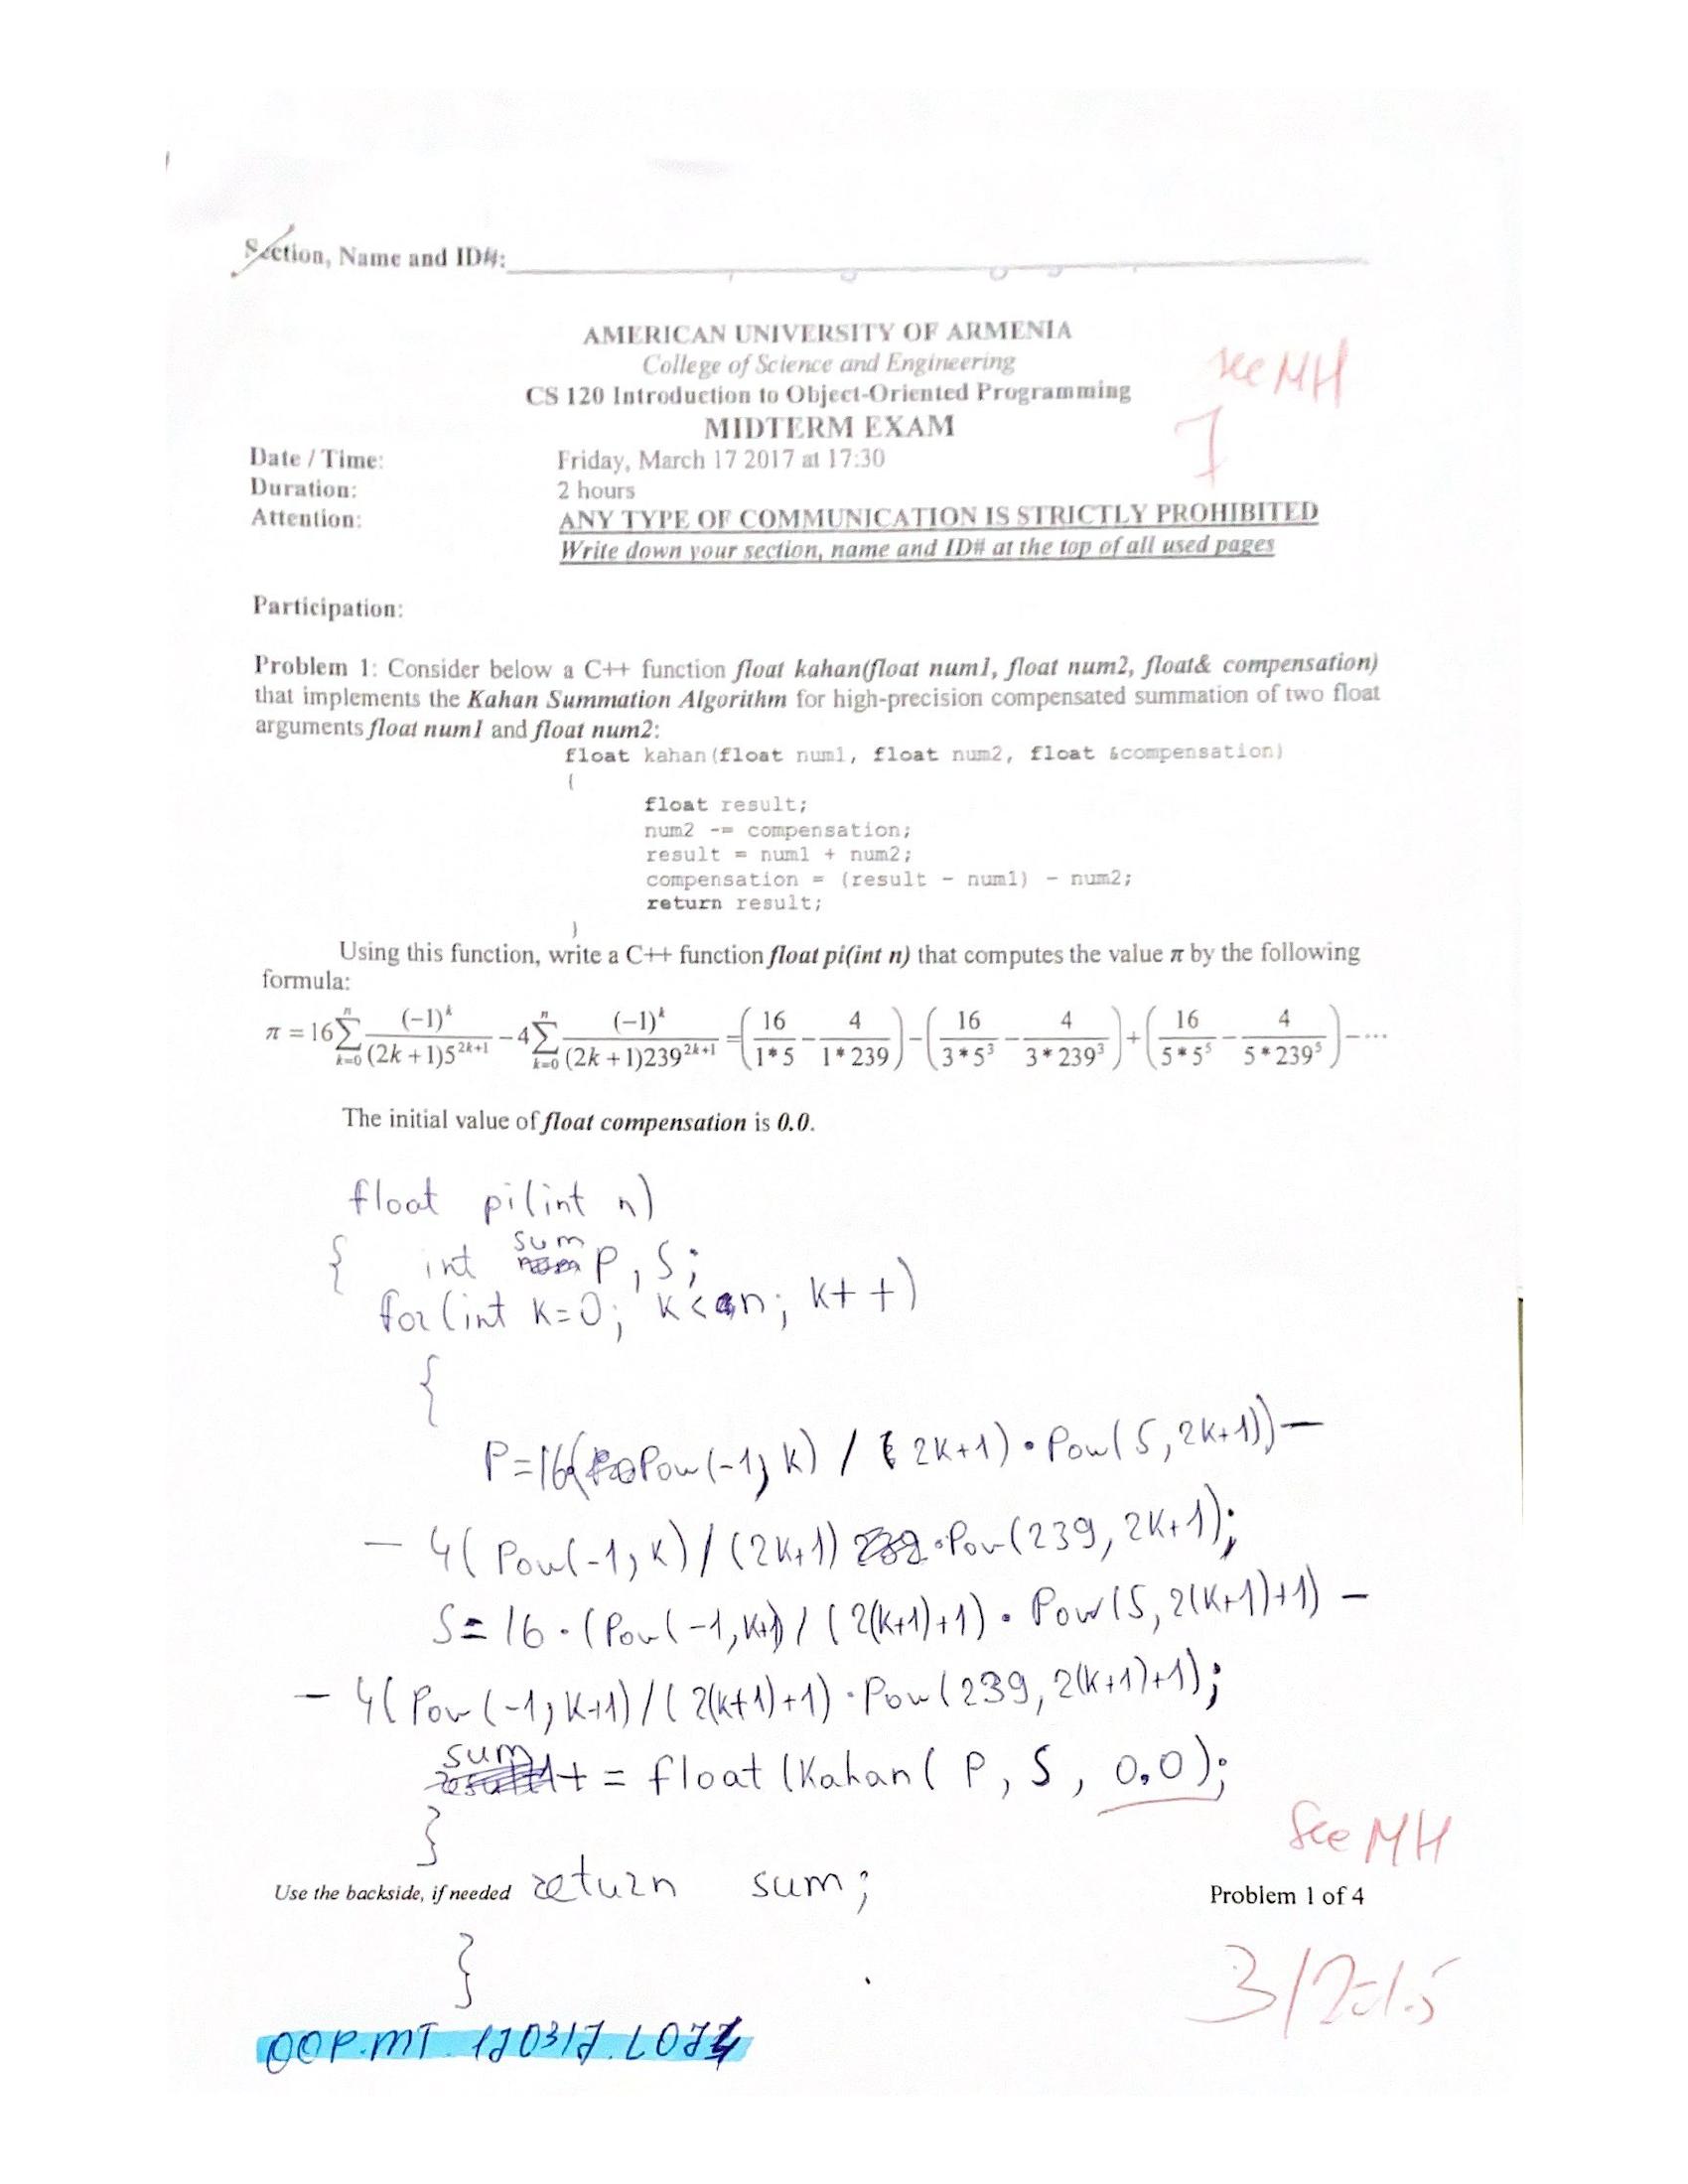 Section, Name and ID#:
AMERICAN UNIVERSITY OF ARMENIA
College of Science and Engineering
see MH
CS 120 Introduction to Object-Oriented Programming
MIDTERM EXAM
Date / Time: Friday, March 17 2017 at 17:30
Duration: 2 hours
Attention: ANY TYPE OF COMMUNICATION IS STRICTLY PROHIBITED
Write down your section, name and ID# at the top of all used pages
Participation:
Problem 1: Consider below a C++ function float kahan(float num1, float num2, float& compensation)
that implements the Kahan Summation Algorithm for high-precision compensated summation of two float
arguments float num1 and float num2:
float kahan(float num1, float num2, float &compensation)
{
float result;
num2 -= compensation;
result = num1 + num2;
compensation = (result - num1) - num2;
return result;
}
Using this function, write a C++ function float pi(int n) that computes the value π by the following
formula:
π = 16 ∑_{k=0}^{n} (-1)^k / ((2k+1)5^{2k+1}) - 4 ∑_{k=0}^{n} (-1)^k / ((2k+1)239^{2k+1}) = (16/(1*5) - 4/(1*239)) - (16/(3*5^3) - 4/(3*239^3)) + (16/(5*5^5) - 4/(5*239^5)) - ...
The initial value of float compensation is 0.0.
float pi(int n)
{ int sum P, S;
for(int k=0; k<n; k++)
{
P=16(Pow(-1, k) / (2k+1) • Pow(5, 2k+1)) –
– 4( Pow(-1, k) / (2k+1) • Pow(239, 2k+1);
S = 16 • (Pow(-1, k+1) / (2(k+1)+1) • Pow(5, 2(k+1)+1) –
– 4( Pow(-1, k+1) / (2(k+1)+1) • Pow(239, 2(k+1)+1);
sum += float (Kahan( P, S, 0.0);
}
See MH
Use the backside, if needed return sum;
Problem 1 of 4
}
OOP.MT.170317.L